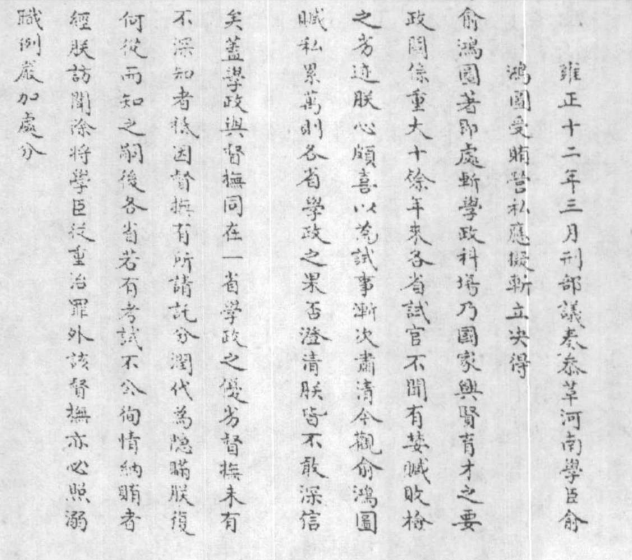 雍正十二年三月刑部議奏叅革河南學臣俞
鴻圖受賄營私應擬斬立決得
俞鴻圖著即處斬學政科場乃國家興賢育才之要
政關係重大十餘年來各省試官不聞有婪贓敗檢
之劣迹朕心頗喜以為試事漸次肅清今觀俞鴻圖
贓私累萬則各省學政之果否澄清朕皆不敢深信
矣蓋學政與督撫同在一省學政之優劣督撫未有
不深知者祗因督撫有所請託分潤代為隐瞞朕復
何從而知之嗣後各省若有考試不公徇情納賄者
經朕訪聞除將學臣從重治罪外該督撫亦必照溺
職例嚴加處分